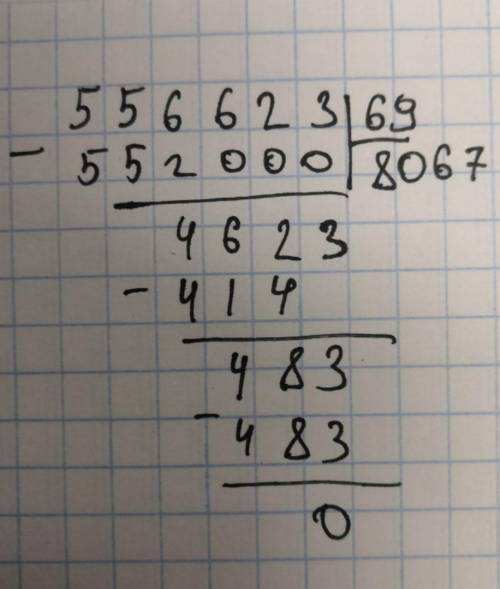 556623|69
- 552000|8067
4623
- 414
483
- 483
0